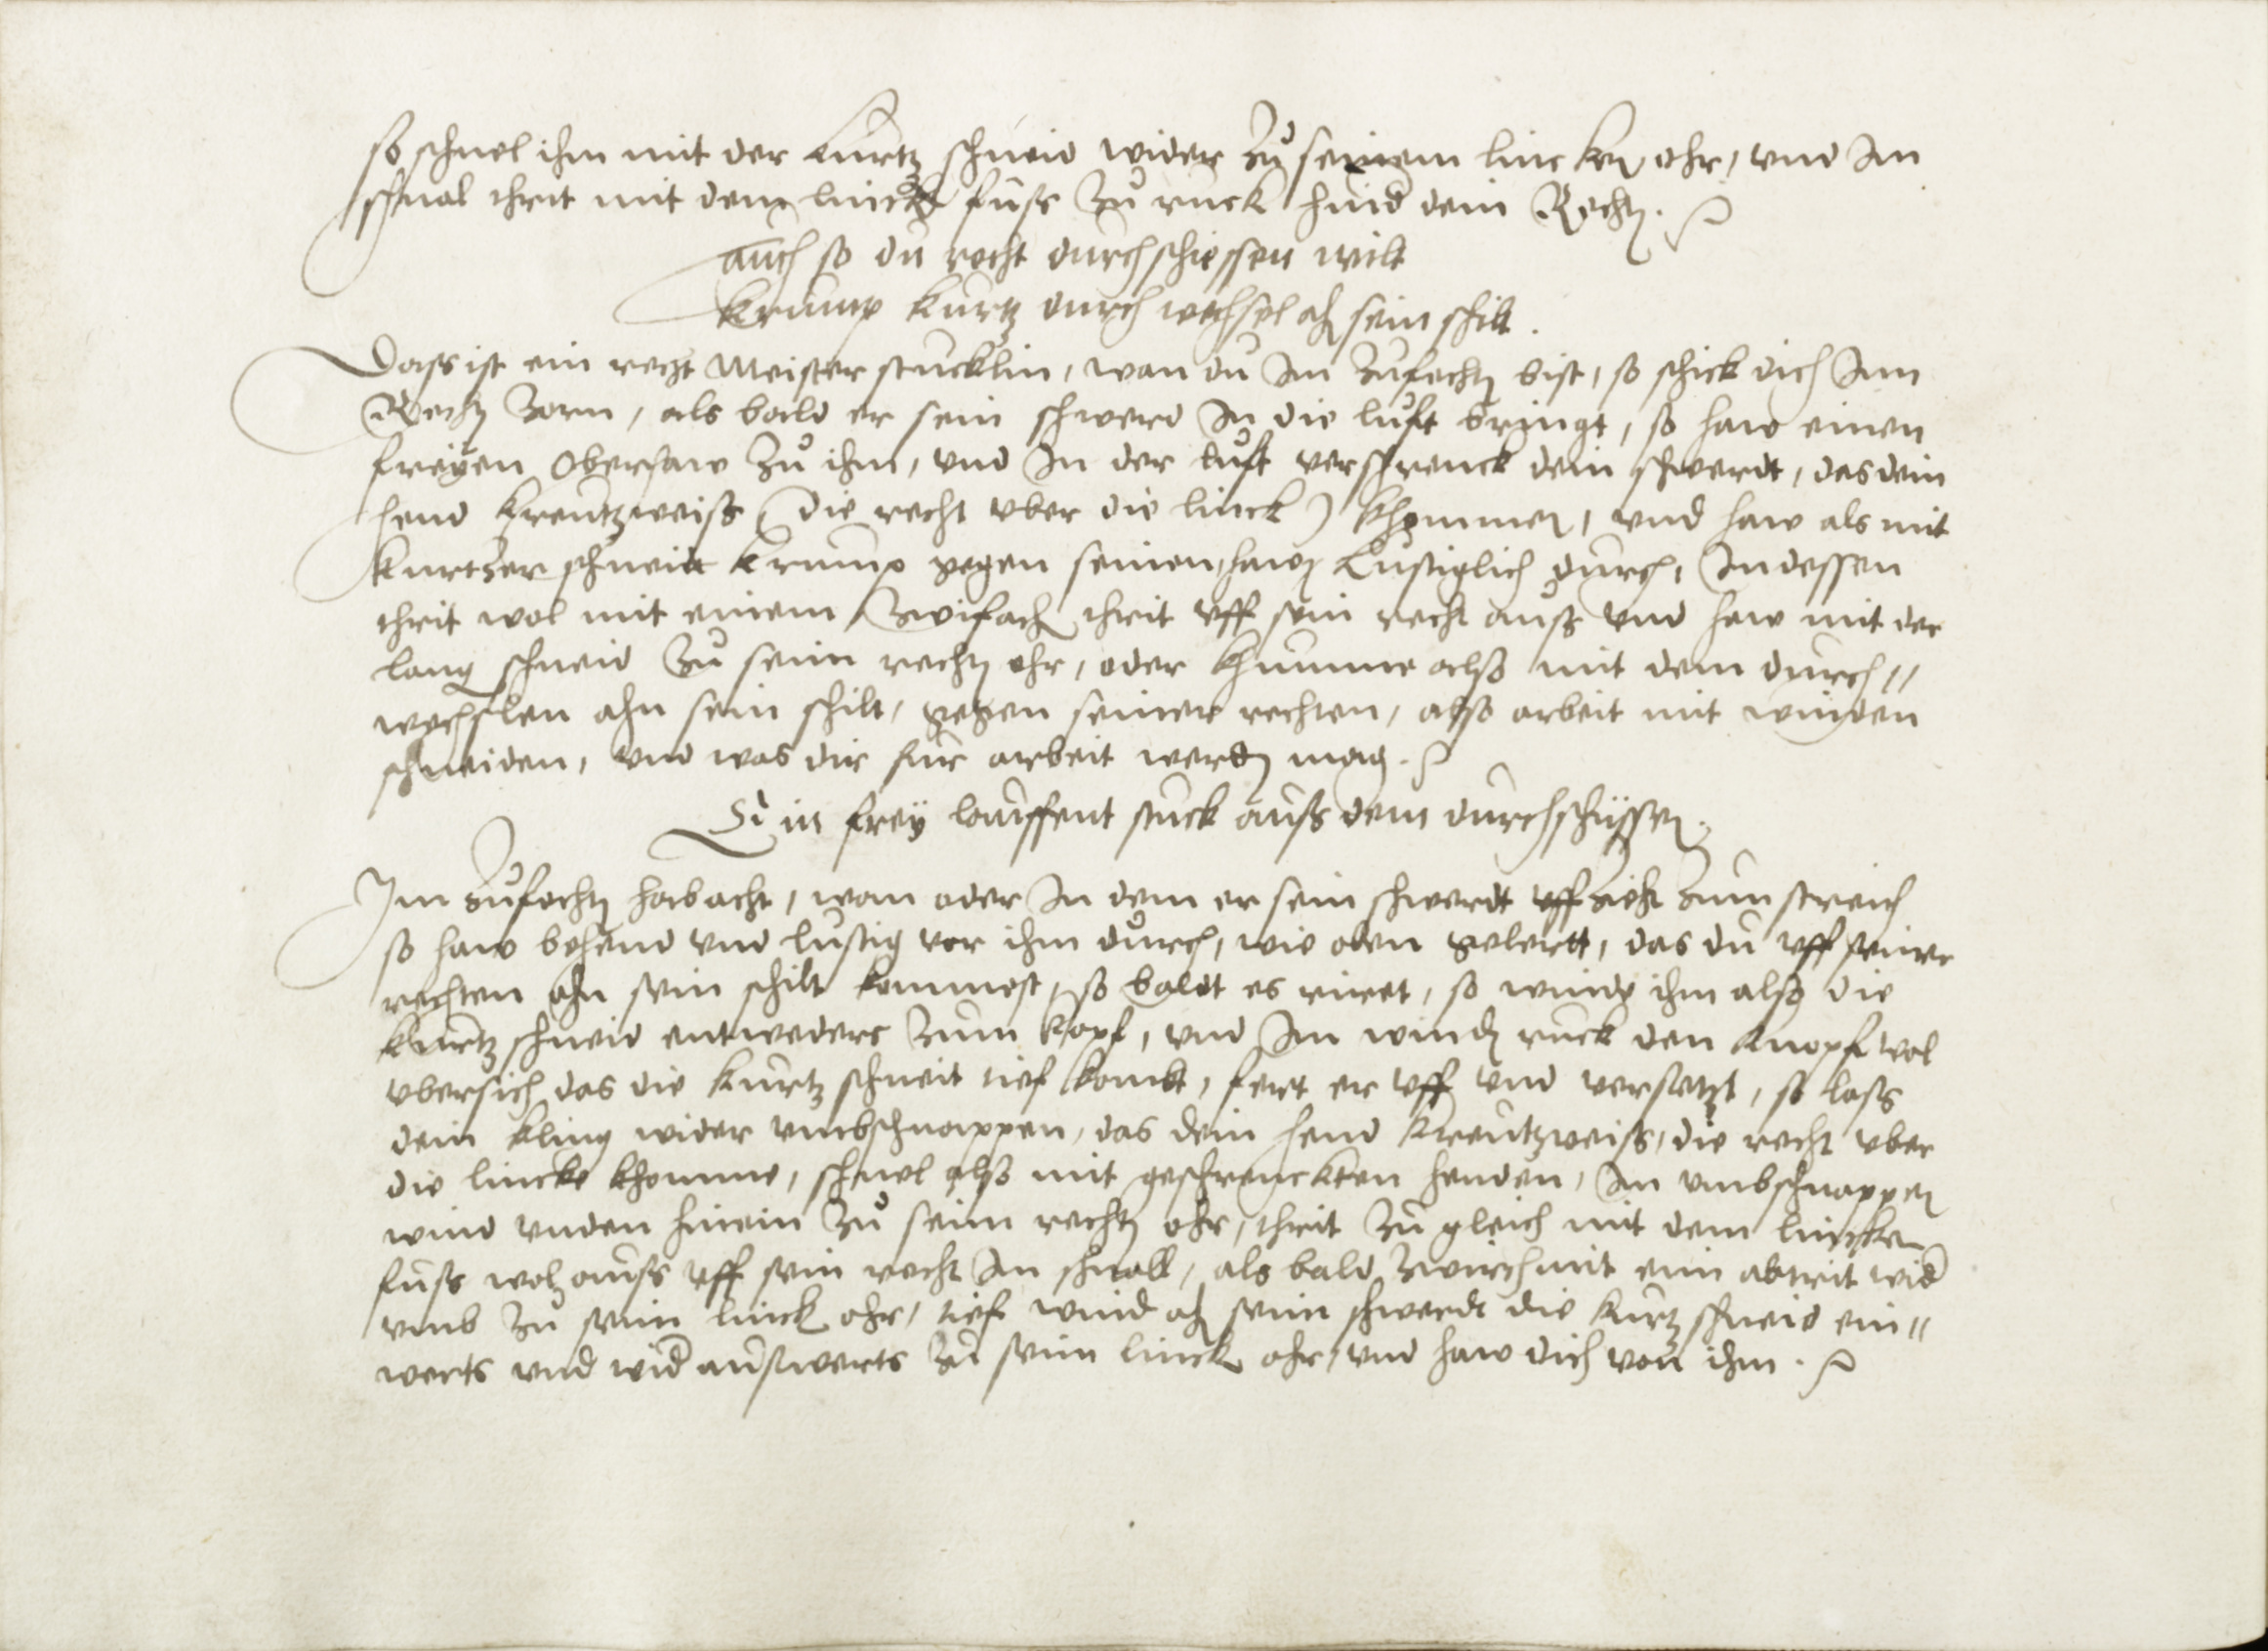 so schnel ihm mit der kurtz schneid wider zu seinem lincken ohr, vnd im
schnal thrit mit dem lincken fuss zu ruck hind dein Rechten.
auch so du recht durchschiessen wilt
krump kurtz durch wechsel ahn sein schilt.
Dass ist ein recht Meister stucklin, wan du im zufechten bist, so schick dich Inn
Rechten zorn, als bald er sein schwerd in die luft bringt, so haw einen
freÿen Oberhaw zu ihm, vnd in der luft verschrenck dein schwerdt, das dein
hend kreutzweiss (die recht vber die linck) khommen, vnd haw als mit
kurtzer schneidt krump gegen seinen hawen lustiglich durch, Indessen
thrit wol mit einem zwifachen thrit vff sein recht auss vnd haw mit der
lang schneid zu seim rechten ohr, oder khumme also mit dem durch//
wechslen ahn sein schilt, gegen seiner rechten, also arbeit mit winden
schneiden, vnd was dir für arbeit werden mag.
Ein freÿ lauffent stuck auss dem durchschiessen.
Im zufechten hab acht, wan oder in dem er sein schwerdt vff zieht zum streich
so haw behend vnd lustig vor ihm durch, wie oben gelertt, das du vff seiner
rechten ahn sein schilt kommest, so baldt es rüret, so winde ihm also die
kurtz schneid entweders zum kopf, vnd im winden ruck den knopf wol
vbersich das die kurtz schneit tief kombt, fert er vff vnd versetzt, so lass
dein kling wider vmbschnappen, das dein hend kreutzweiss, die recht vber
die lincke khomme, schnel also mit geschrenckten henden, im vmbschnappen
wind vnden hinein zu seim rechten ohr, thrit zu gleich mit dem lincken
fuss wol auss vff sein recht im schnall, als bald zwirch mit eim abtrit wid
vmb zu seim linck ohr, tief wind ahn seim schwerdt die kurtz schneid ein//
werts vnd wid ausswerts zu seim lincken ohr, vnd haw dich von ihm.